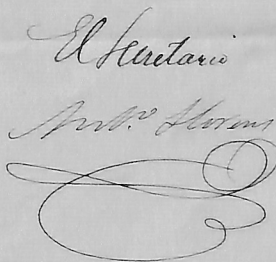 El Secretario
Ant.º Llorens